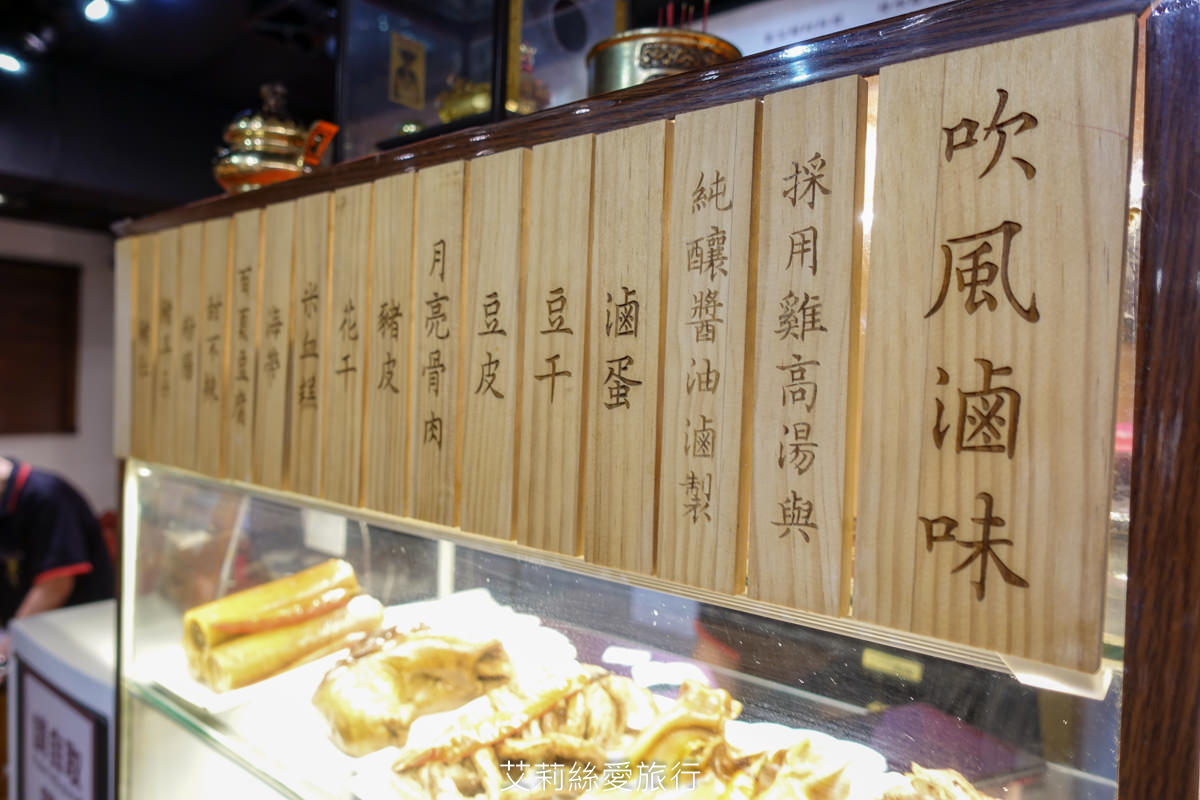 吹風滷味
採用雞高湯與
純釀醬油滷製
滷蛋
豆干
豆皮
月亮骨肉
豬皮
花干
米血糕
海帶
百頁豆腐
甜不辣
請自取
艾莉絲愛旅行